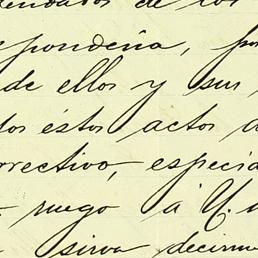 de los
pondéña, po
de ellos y sus
dos éstos actos d
rrectivo, especia
ruego á V.
sirva decirme